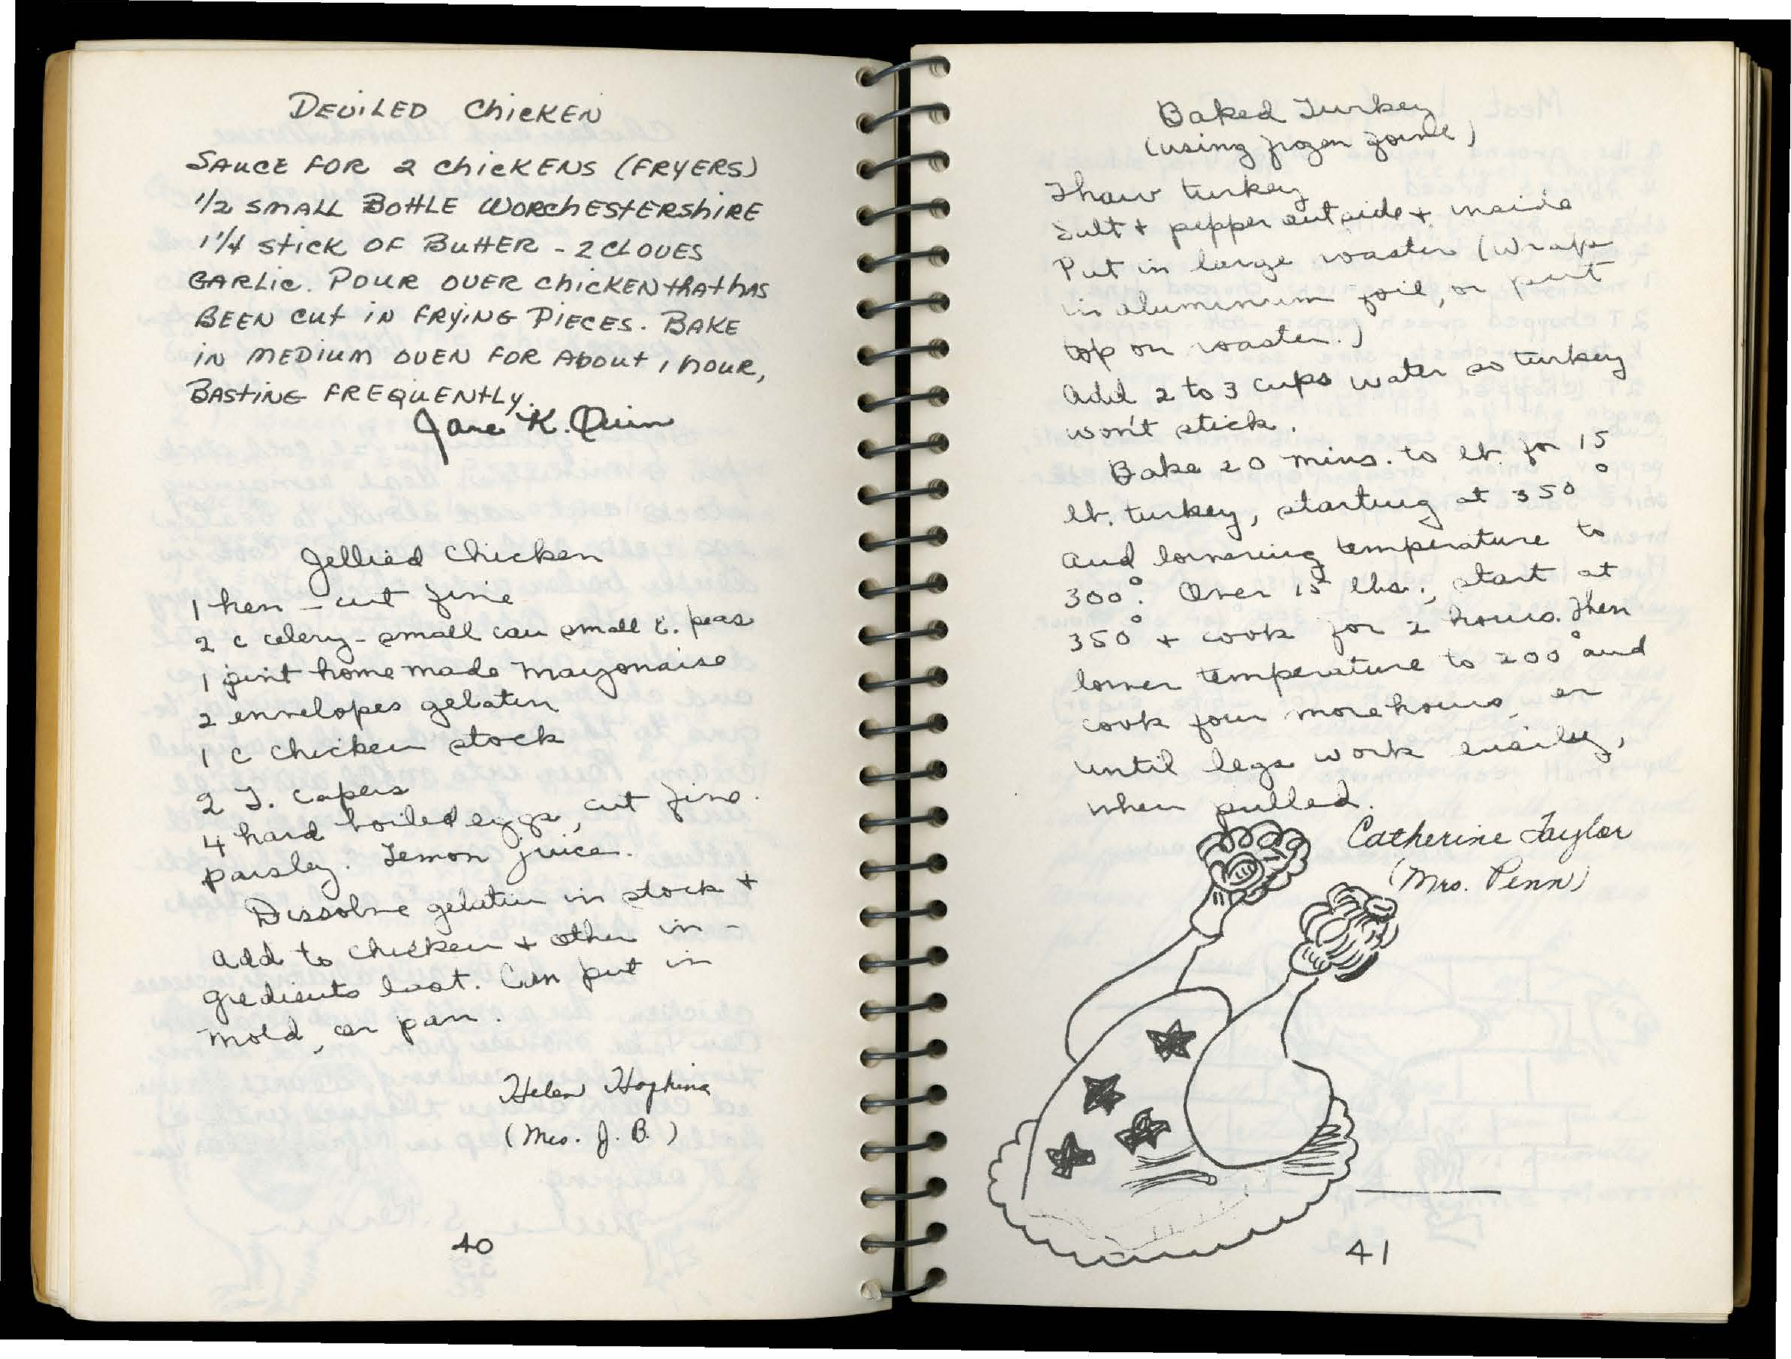 DEVILED CHICKEN
SAUCE FOR 2 CHICKENS (FRYERS)
1/2 SMALL BOTTLE WORCHESTERSHIRE
1 1/4 STICK OF BUTTER - 2 CLOVES
GARLIC. POUR OVER CHICKEN THAT HAS
BEEN CUT IN FRYING PIECES. BAKE
IN MEDIUM OVEN FOR ABOUT 1 HOUR,
BASTING FREQUENTLY.
Jane K. Quinn
Jellied Chicken
1 hen - cut fine
2 c celery - small can small E. peas
1 pint home made mayonaise
2 envelopes gelatin
1 c chicken stock
2 T. capers
4 hard boiled eggs, cut fine.
parsley. Lemon juice.
Dissolve gelatin in stock +
add to chicken + other in-
gredients last. Can put in
mold, or pan.
Helen Hopkins
(Mrs. J. B.)
40
Baked Turkey
(using frozen fowl)
Thaw turkey
Salt + pepper outside + inside
Put in large roaster (Wrap
in aluminum foil, or put
top on roaster.)
Add 2 to 3 cups water so turkey
won't stick.
Bake 20 mins. to lb. for 15
lb. turkey, starting at 350°
and lowering temperature to
300°. Over 15 lbs., start at
350° + cook for 2 hours. Then
lower temperature to 200° and
cook four more hours, or
until legs work easily,
when pulled.
Catherine Taylor
(Mrs. Penn)
41